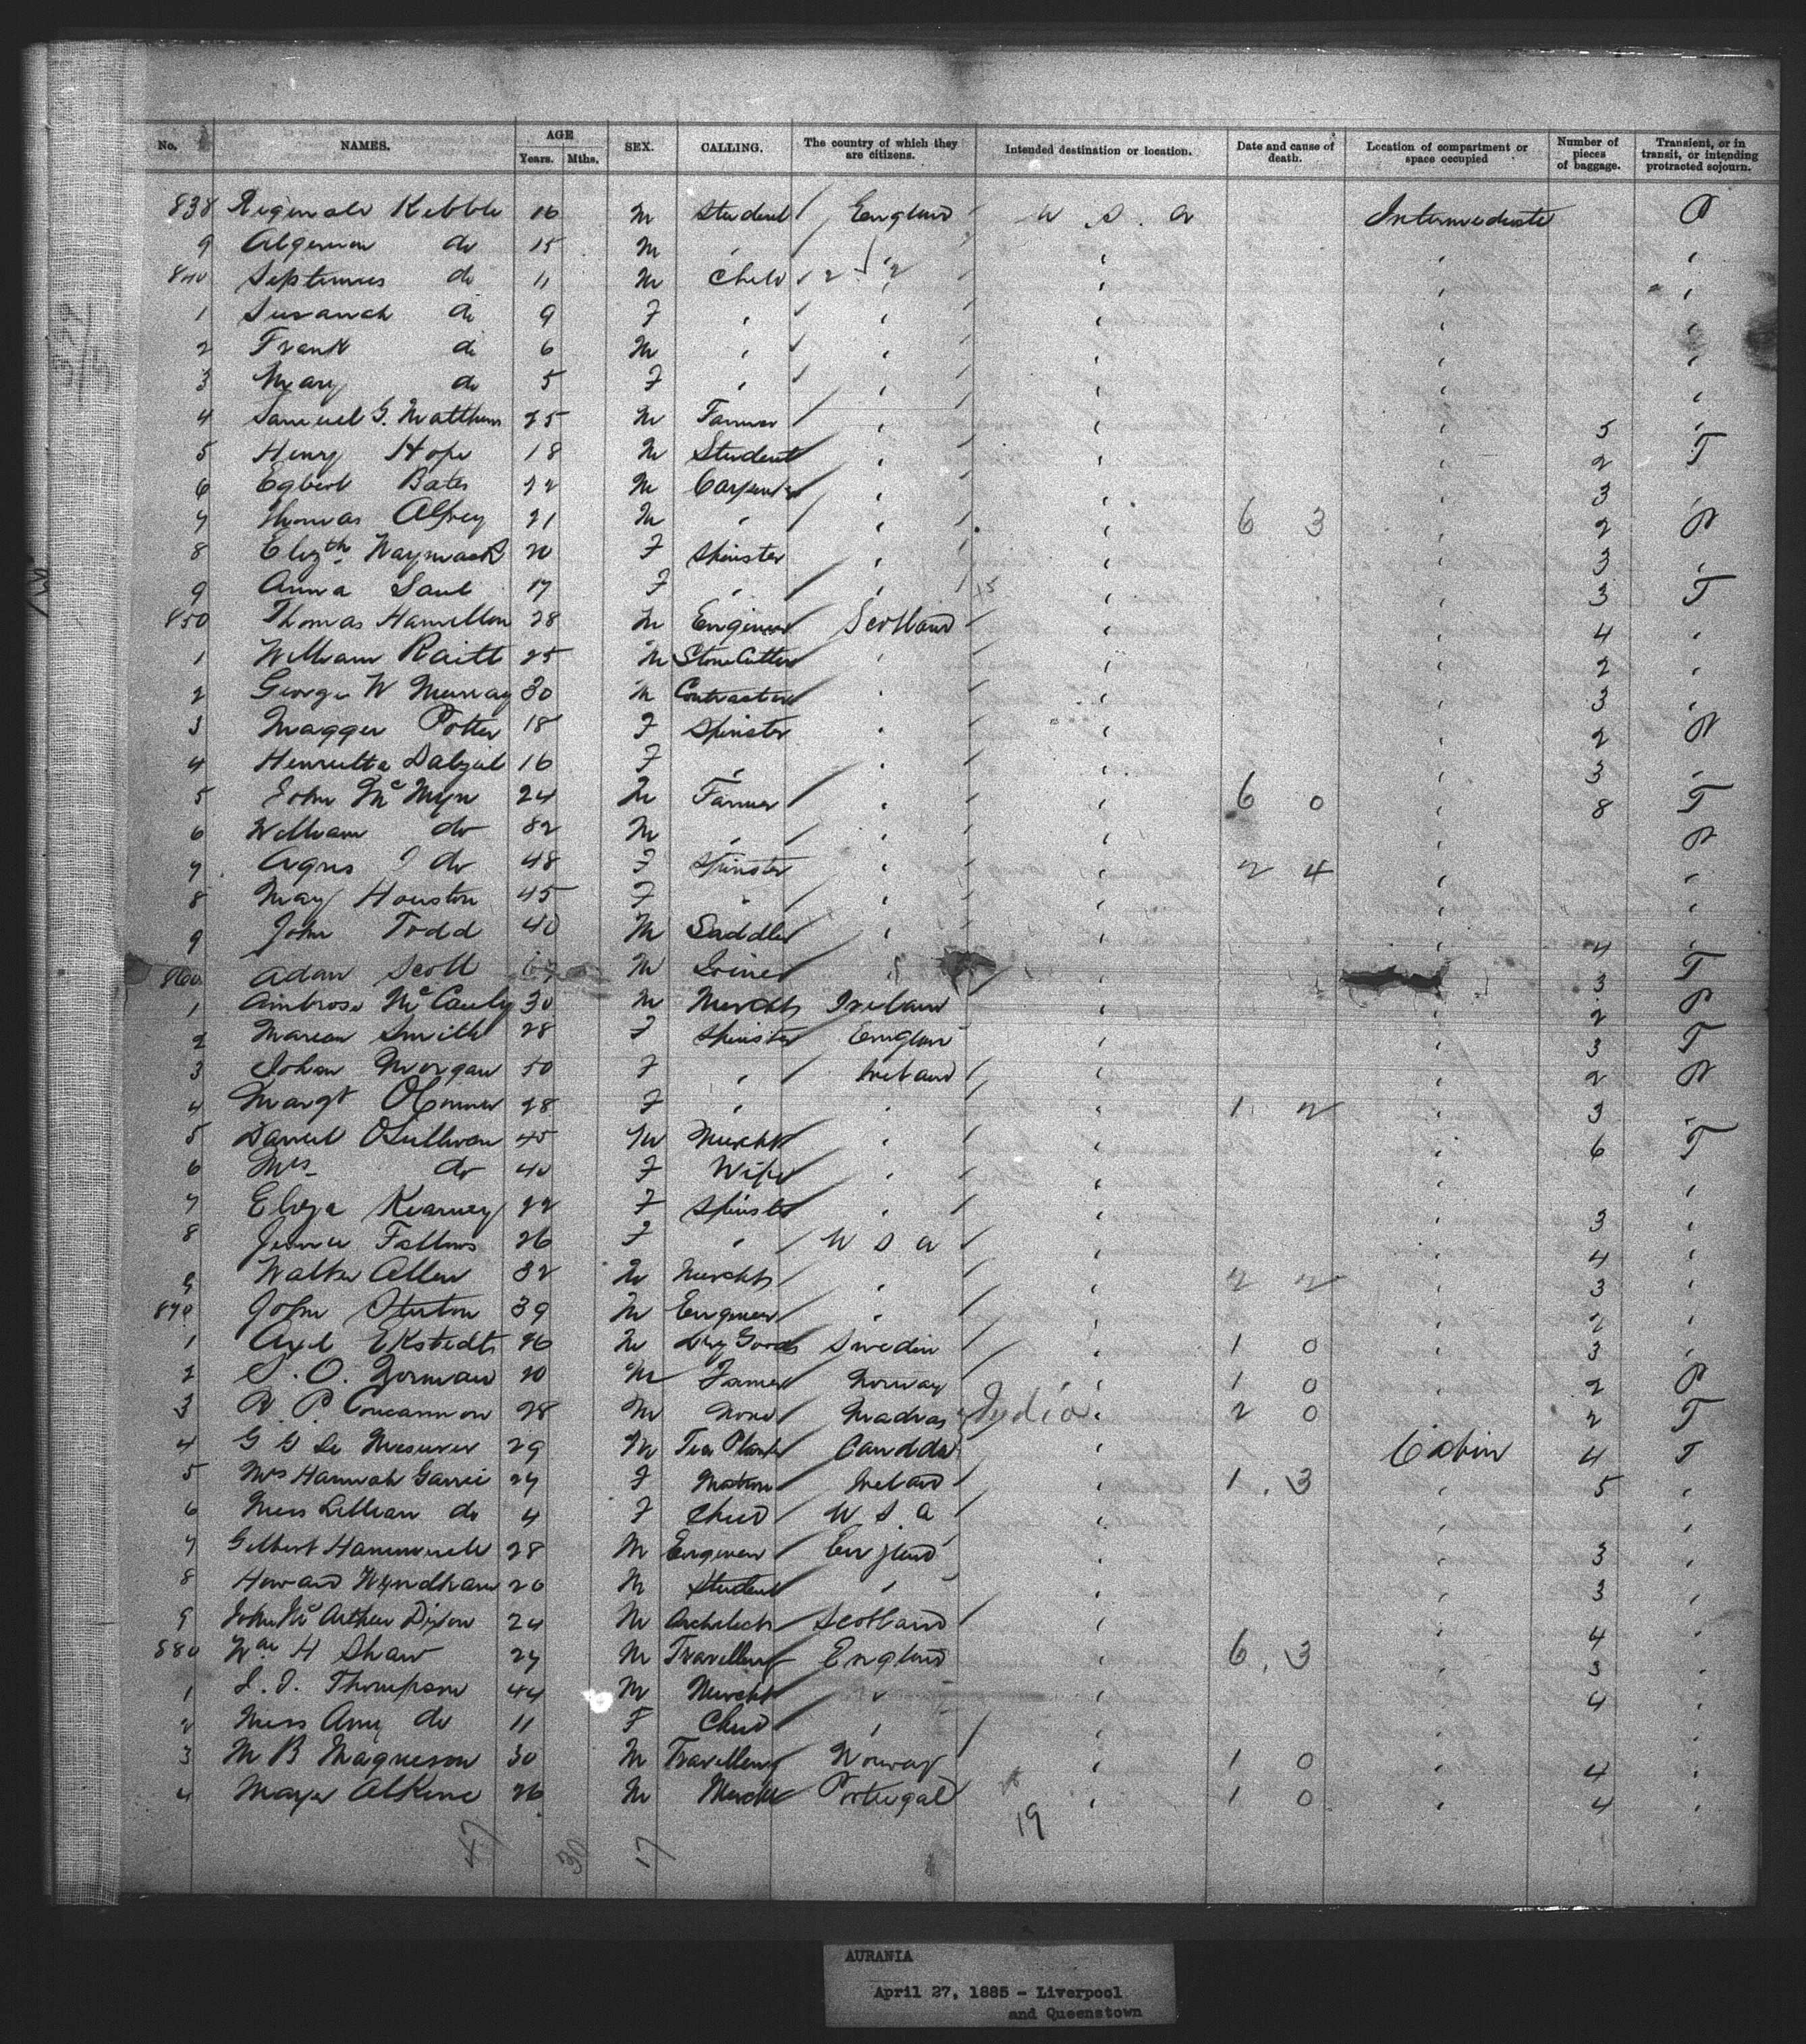 No. NAMES. AGE Years. Mths. SEX. CALLING. The country of which they are citizens. Intended destination or location. Date and cause of death. Location of compartment or space occupied Number of pieces of baggage. Transient, or in transit, or intending protracted sojourn.
838 Reginald Kebble 16 M Student England U. S. A Intermediate P
9 Algernon do 15 M
840 Septimus do 11 M Child
1 Susanah do 9 F
2 Frank do 6 M
3 Mary do 5 F
4 Samuel G. Matthews 25 M Farmer 5
5 Henry Hope 18 M Student 2 T
6 Egbert Bates 22 M Carpenter 3
7 Thomas Alfrey 21 M 6 3 2 P
8 Elizth Waymack 20 F Spinster 3
9 Anna Saul 17 F 3 T
850 Thomas Hamilton 28 M Engineer Scotland 4
1 William Raitt 25 M Stone Cutter 2
2 George W Murray 30 M Contractor 3
3 Magger Potter 18 F Spinster 2 P
4 Henrietta Dalziel 16 F 3
5 John McMyn 24 M Farmer 6 0 8 T
6 William do 82 M P
7 Agnes do 48 F Spinster 2 4
8 May Houston 45 F
9 John Todd 40 M Saddler 4
860 Adam Scott M Joiner 3 T
1 Ambrose McCauly 30 M Merchts Ireland 2 P
2 Marian Smith 28 F Spinster England 3 T
3 Johan Morgan 50 F Ireland 2 P
4 Margt OConnor 28 F 1 2 3
5 Daniel OSullivan 45 M Mercht 6 T
6 Mrs do 40 F Wife
7 Eliza Kearney 22 F Spinster 3
8 Jennie Fallows 26 F U S A 4
9 Walter Allen 32 M Merchts 2 2 3
870 John Sturton 39 M Engineer 2
1 Axel Ekstedt 26 M Dry Goods Sweden 1 0 3
2 S. O. Gorman 20 M Farmer Norway 1 0 2 P
3 P. Concannon 28 M None Madras India 2 0 2 T
4 G G Le Mesurier 29 M Tea Planter Canada Cabin 4 T
5 Mrs Hannah Garrie 27 F Matron Ireland 1. 3 5
6 Miss Lillian do 4 F Child U S. A
7 Gilbert 28 M Engineer England 3
8 Howard Wyndham 20 M Student 3
9 John McArthur Dixon 24 M Architect Scotland 4
880 Wm H Shaw 27 M Travelling England 6. 3 3
1 J. J. Thompson 44 M Mercht 4
2 Miss Amy do 11 F Child
3 M B Magneson 30 M Travelling Norway 1 0 4
4 Mayer Alkine 26 M Mercht Portugal 1 0 4
19
47 30 17
AURANIA
April 27, 1885 - Liverpool
and Queenstown